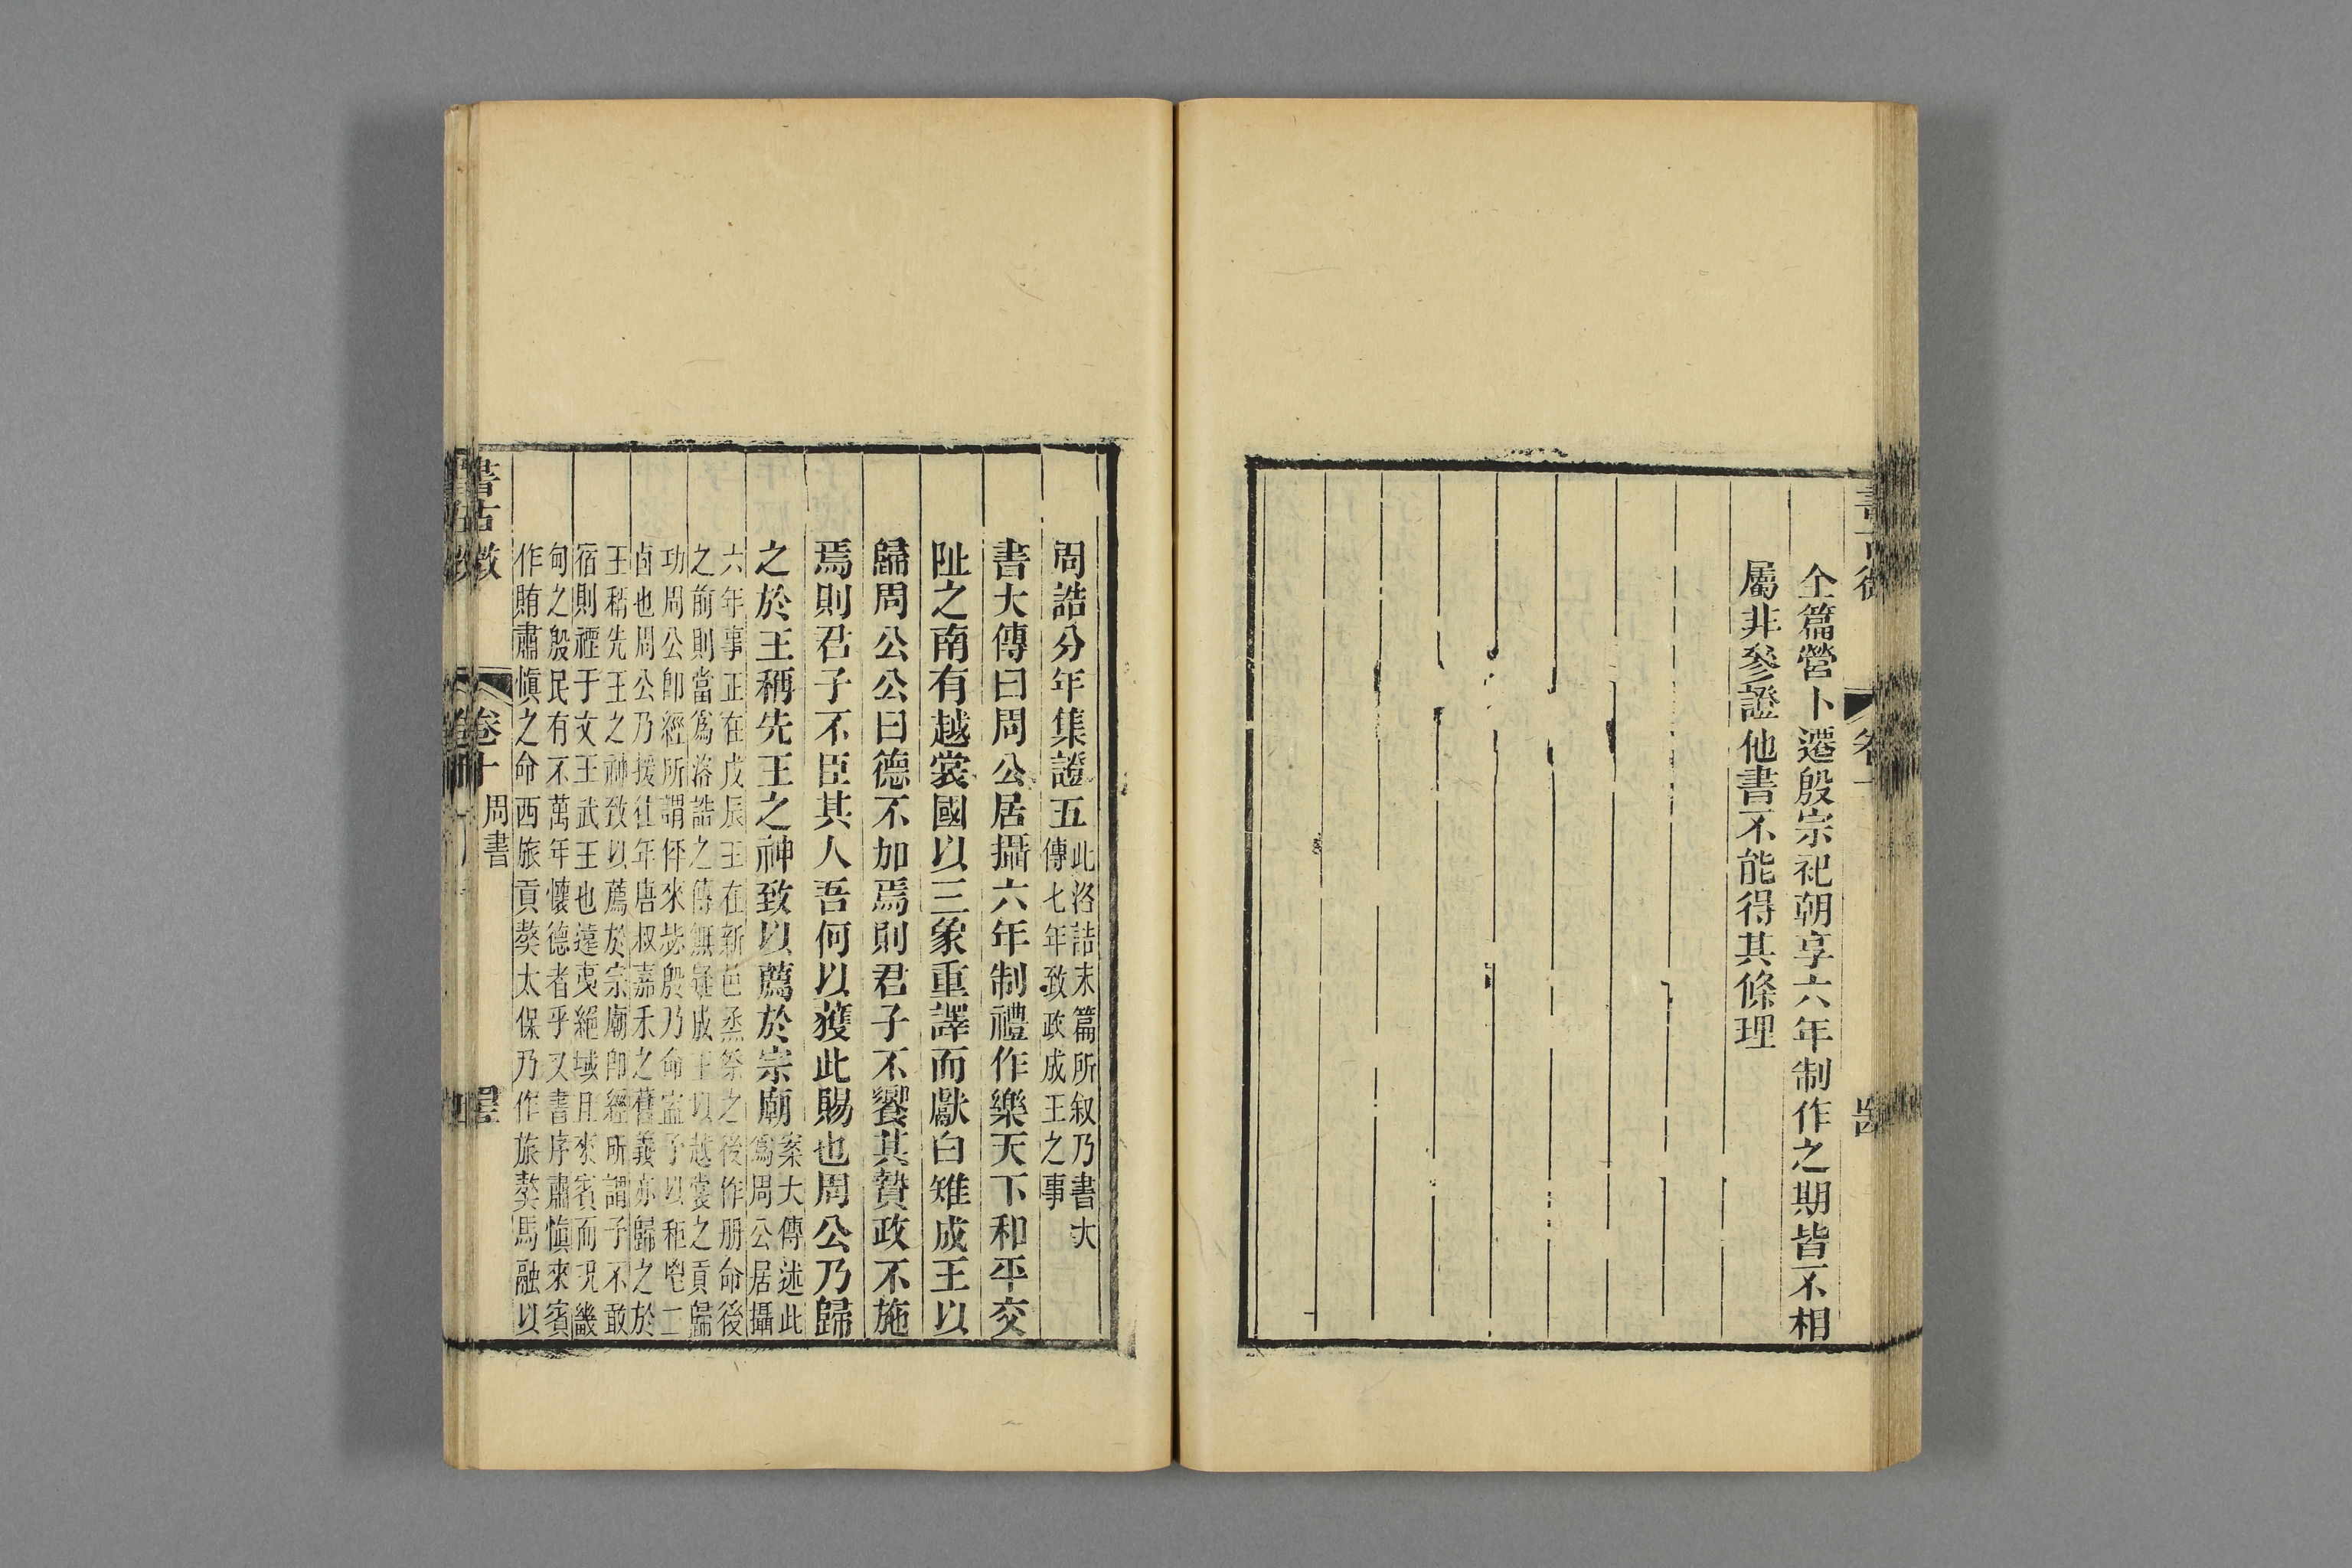 仝篇營卜遷殷宗祀朝享六年制作之期皆不相
屬非參證他書不能得其條理
周誥分年集證五
此洛誥末篇所叙乃書大
傳七年致政成王之事
書大傳曰周公居攝六年制禮作樂天下和平交
阯之南有越裳國以三象重譯而獻白雉成王以
歸周公公曰德不加焉則君子不饗其贄政不施
焉則君子不臣其人吾何以獲此賜也周公乃歸
之於王稱先王之神致以薦於宗廟
案大傳述此
爲周公居攝
六年事正在戊辰王在新邑烝祭之後作册命後
之前則當爲洛誥之傳無疑成王以越裳之貢歸
功周公卽經所謂伻來毖殷乃命寍予以秬鬯二
卣也周公乃援往年唐叔嘉禾之舊義亦歸之於
王稱先王之神致以薦於宗廟卽經所謂予不敢
宿則禋于文王武王也遠夷絕域且來賓而况畿
甸之殷民有不萬年懷德者乎又書序肅愼來賓
作賄肅愼之命西旅貢獒太保乃作旅獒馬融以
書古微
卷十
周書